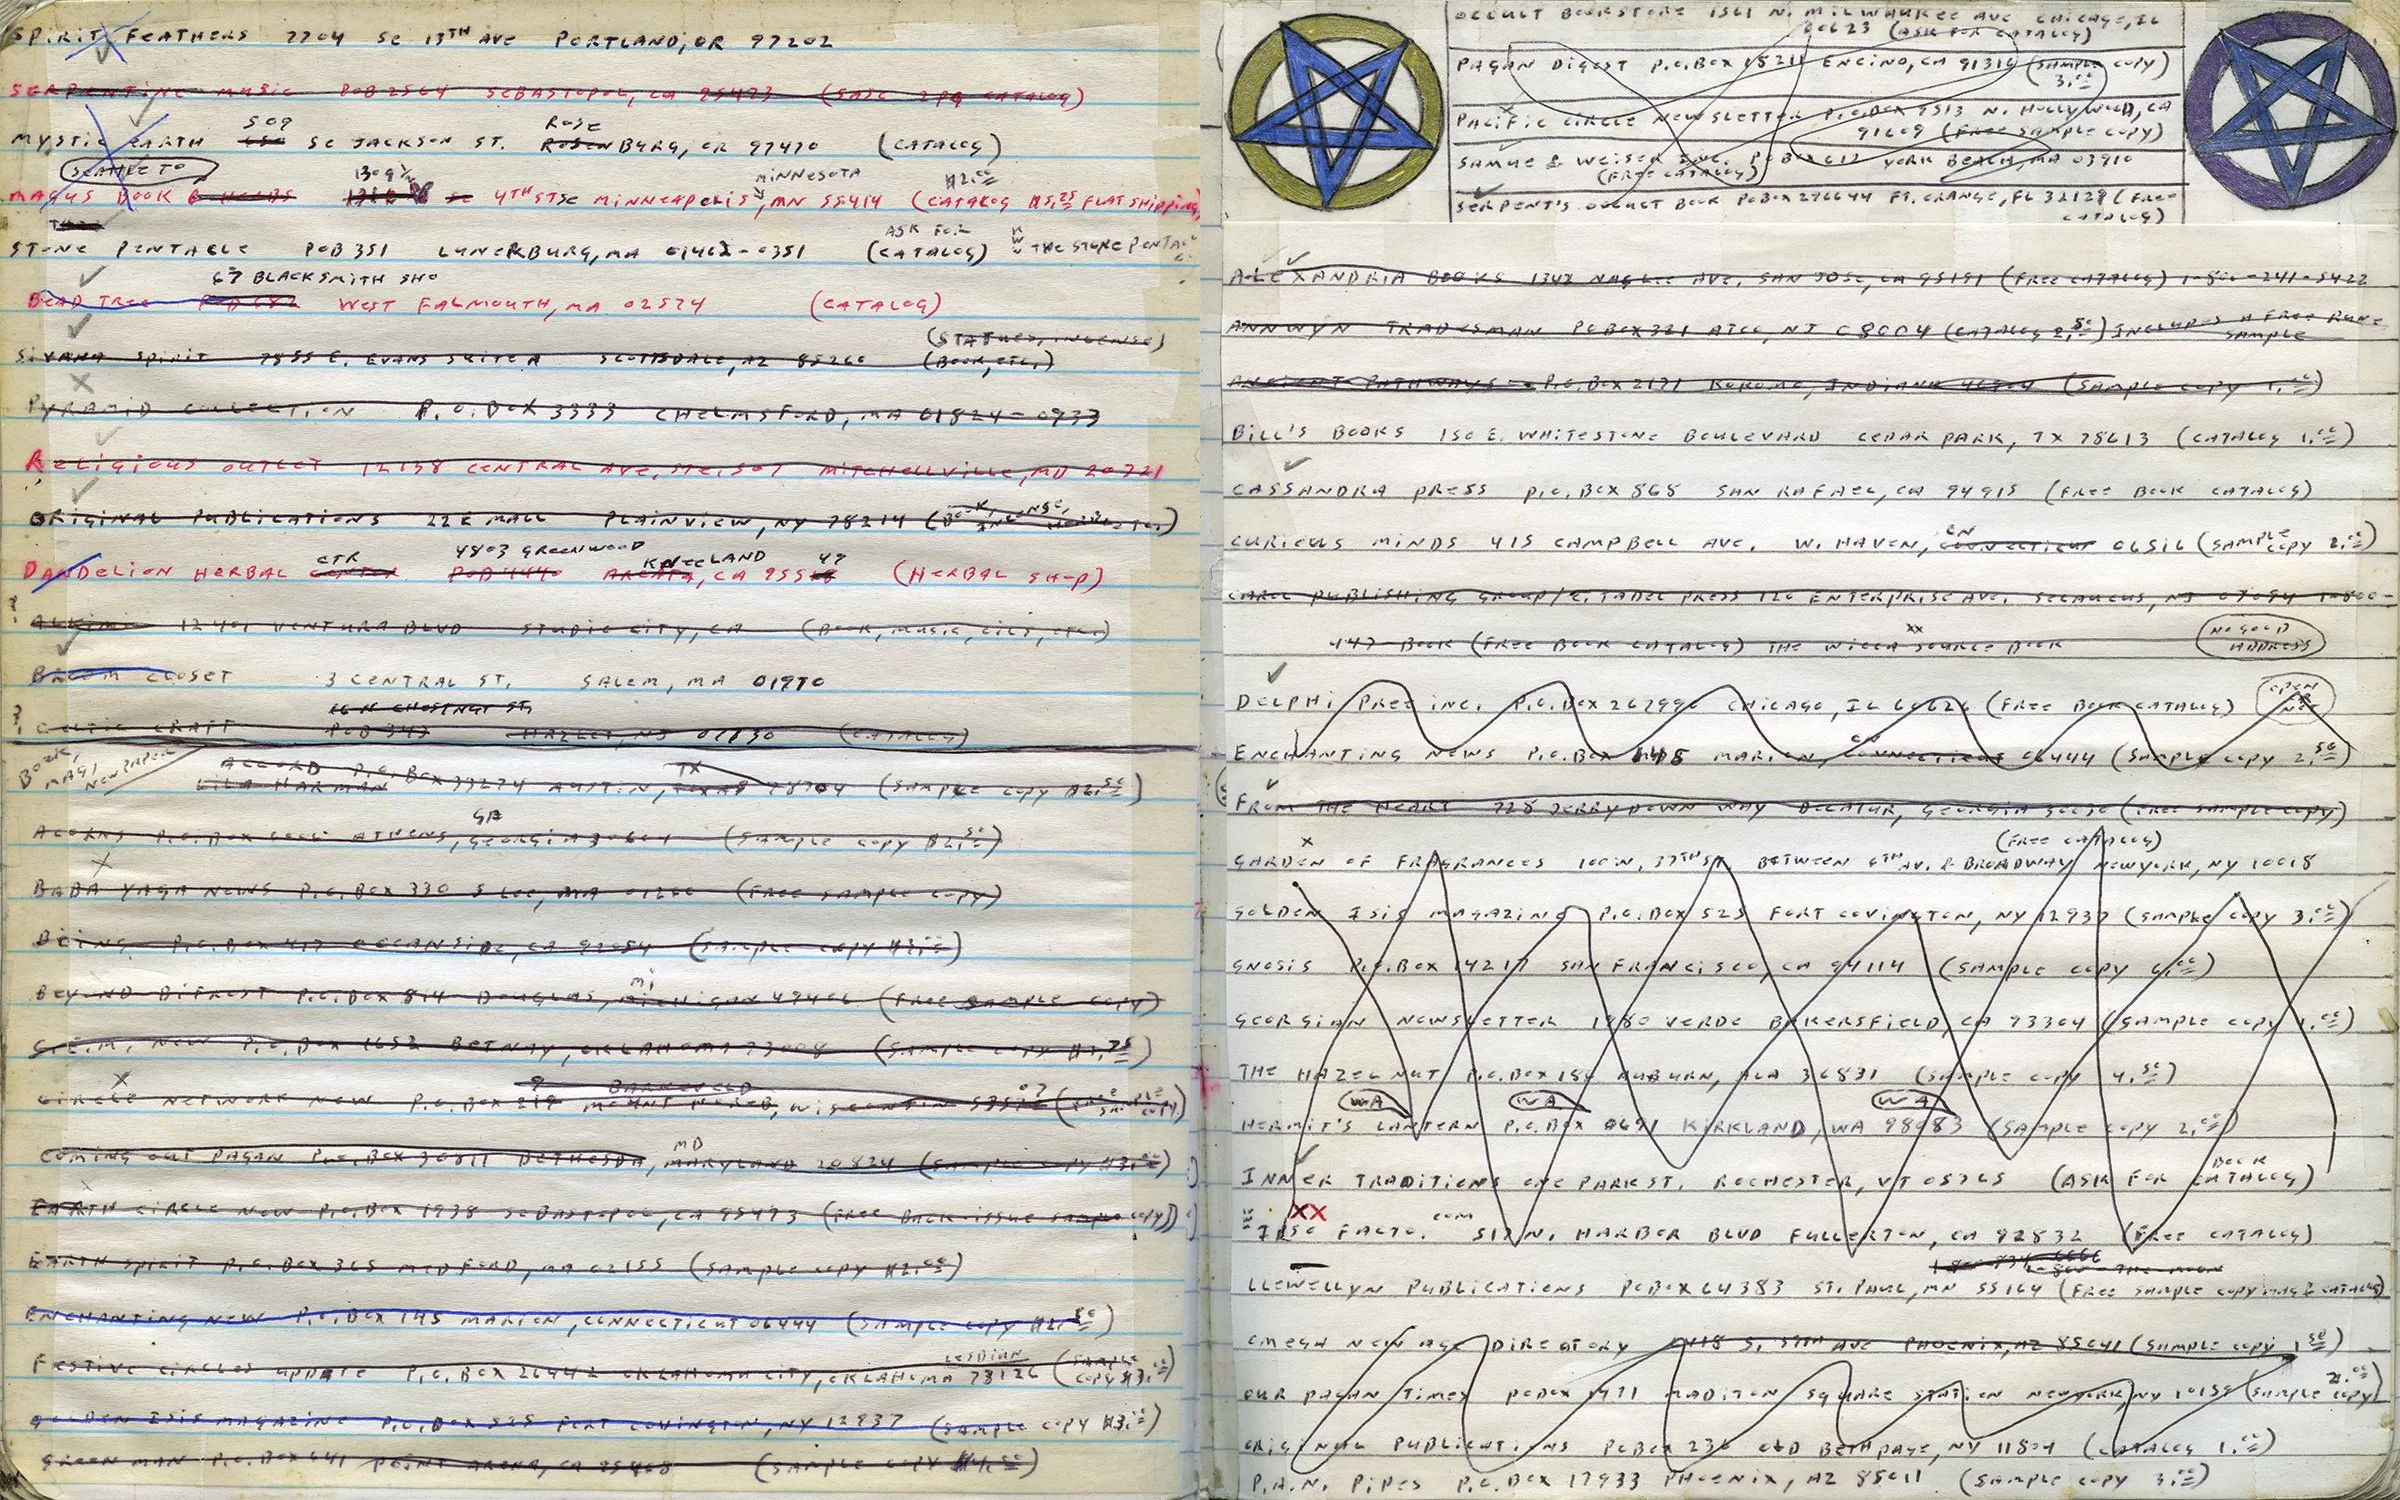 SPIRIT FEATHERS 7704 SE 13TH AVE PORTLAND, OR 97202
SERPENTINE MUSIC POB 2564 SEBASTOPOL, CA 95473 (SASE 2PG CATALOG)
509 ROSE
MYSTIC EARTH SE JACKSON ST. ROSEN BURG, OR 97470 (CATALOG)
SEATTLE TO 1309½ MINNESOTA $2.00
MAGUS BOOK & HERBS SE 4TH ST SE MINNEAPOLIS, MN 55414 (CATALOG $5.25 FLAT SHIPPING)
ASK FOR
STONE PENTACLE POB 351 LUNENBURG, MA 01462-0351 (CATALOG) WWW THE STONE PENTACLE
67 BLACKSMITH SHO
BEAD TREE POB 682 WEST FALMOUTH, MA 02574 (CATALOG)
(STATUES, INCENSE)
SIVANA SPIRIT 7855 E. EVANS SUITE A SCOTTSDALE, AZ 85260 (BOOK, ETC.)
PYRAMID COLLECTION P.O. BOX 3333 CHELMSFORD, MA 01824-0933
RELIGIOUS OUTLET 12138 CENTRAL AVE. STE. 507 MITCHELLVILLE, MD 20721
ORIGINAL PUBLICATIONS 22 E MALL PLAINVIEW, NY 78214 (BOOK, INCENSE,
CTR 4803 GREENWOOD KNEELAND 49
DANDELION HERBAL CENTER POB 4440 ARCATA, CA 955 (HERBAL SHOP)
? 12401 VENTURA BLVD STUDIO CITY, CA (BOOK, MUSIC, OILS, ETC.)
BROOM CLOSET 3 CENTRAL ST. SALEM, MA 01970
16 N CHESTNUT ST.
? CELTIC CRAFT POB 347 HAZLET, NJ 07730 (CATALOG)
BOOK, MAG, NEWPAPER
ACCORD P.O. BOX 33274 AUSTIN, TX TEXAS 78704 (SAMPLE COPY $2.50)
LILA HARMAN
GA
ACORNS P.O. BOX ATHENS, GEORGIA 30604 (SAMPLE COPY $2.50)
BABA YAGA NEWS P.O. BOX 330 S LEE, MA 01260 (FREE SAMPLE COPY)
BEING P.O. BOX 417 OCEANSIDE, CA 92054 (SAMPLE COPY $3.00)
MI
BEYOND BIFROST P.O. BOX 814 DOUGLAS, MICHIGAN 49406 (FREE SAMPLE COPY)
NEW P.O. BOX 1652 BETNAY, OKLAHOMA 73008 (SAMPLE COPY $1.75)
9 BARNEVELD 07
CIRCLE NETWORK NEW P.O. BOX 219 MOUNT HOREB, WISCONTIN (FREE SAMPLE COPY)
MD
COMING OUT PAGAN P.O. BOX 30811 BETHESDA, MARYLAND 20824 (SAMPLE COPY $3.00)
EARTH CIRCLE NEW P.O. BOX 1938 SEBASTOPOL, CA 95473 (FREE BACK-ISSUE SAMPLE COPY)
EARTH SPIRIT P.O. BOX 365 MEDFORD, MA 02155 (SAMPLE COPY $2.00)
ENCHANTING NEW P.O. BOX 145 MARION, CONNECTICUT 06444 (SAMPLE COPY $2.50)
LESBIAN
FESTIVE CIRCLES UPDATE P.O. BOX 26442 OKLAHOMA CITY, OKLAHOMA 73126 (SAMPLE COPY $3.00)
GOLDEN ISIS MAGAZINE P.O. BOX 525 FORT COVINGTON, NY 12937 (SAMPLE COPY $3.00)
GREEN MAN P.O. BOX 641 POINT ARENA, CA 95468 (SAMPLE COPY
OCCULT BOOKSTORE 1561 N. MILWAUKEE AVE CHICAGO, IL
60623 (ASK FOR CATALOG)
PAGAN DIGEST P.O. BOX 15211 ENCINO, CA 91316 (SAMPLE COPY)
3.00
PACIFIC CIRCLE NEWSLETTER P.O. BOX 9513 N. HOLLYWOOD, CA
91609 (FREE SAMPLE COPY)
SAMUE & WEISER INC. POBOX 612 YORK BEACH, MA 03910
(FREE CATALOG)
SERPENT'S OCCULT BOOK POBOX 296644 FT. ORANGE, FL 32129 (FREE
CATALOG)
ALEXANDRIA BOOKS 1342 NAGLEE AVE. SAN JOSE, CA 95191 (FREE CATALOG) 1-800-241-5422
ANNWYN TRADESMAN POBOX 321 ATCO, NJ 08004 (CATALOG 2.50) INCLUDES A FREE RUNE
SAMPLE
ANCIENT PATHWAYS P.O. BOX 2171 KOKOMO, INDIANA 46904 (SAMPLE COPY 1.00)
BILL'S BOOKS 150 E. WHITESTONE BOULEVARD CEDAR PARK, TX 78613 (CATALOG 1.00)
CASSANDRA PRESS P.O. BOX 868 SAN RAFAEL, CA 94915 (FREE BOOK CATALOG)
CN
CURIOUS MINDS 415 CAMPBELL AVE. W. HAVEN, CONNECTICUT 06516 (SAMPLE COPY 2.00)
CAROL PUBLISHING GROUP/CITADEL PRESS 120 ENTERPRISE AVE. SECAUCUS, NJ 07094 1-800-
447-BOOK (FREE BOOK CATALOG) THE WICCA SOURCE BOOK
XX
NO GOOD ADDRESS
DELPHI PREE INC. P.O. BOX 267990 CHICAGO, IL 60626 (FREE BOOK CATALOG)
CN
ENCHANTING NEWS P.O. BOX 145 MARION, CONNECTICUT 06444 (SAMPLE COPY 2.50)
FROM THE HEART 728 JERRYDOWN WAY DECATUR, GEORGIA 30030 (FREE SAMPLE COPY)
(FREE CATALOG)
GARDEN OF FRAGRANCES 100 W. 37TH ST BETWEEN 6TH AV. & BROADWAY NEWYORK, NY 10018
GOLDEN ISIS MAGAZINE P.O. BOX 525 FORT COVINGTON, NY 12937 (SAMPLE COPY 3.00)
GNOSIS P.O. BOX 14217 SAN FRANCISCO, CA 94114 (SAMPLE COPY 6.00)
GEORGIAN NEWSLETTER 1980 VERDE BAKERSFIELD, CA 93304 (SAMPLE COPY 1.00)
THE HAZEL NUT P.O. BOX 186 AUBURN, ALA 36831 (SAMPLE COPY 4.50)
WA WA WA
HERMIT'S LANTERN P.O. BOX 0691 KIRKLAND, WA 98083 (SAMPLE COPY 2.00)
BOOK
INNER TRADITIONS ONE PARK ST. ROCHESTER, VT 05765 (ASK FOR CATALOG)
XX
IPSO FACTO. COM 517 N. HARBOR BLVD FULLERTON, CA 92832 (FREE CATALOG)
1-800-THE-MOON
LLEWELLYN PUBLICATIONS POBOX 64383 ST. PAUL, MN 55164 (FREE SAMPLE COPY MAG & CATALOG)
OMEGA NEW AGE DIRECTORY S. 39TH AVE PHOENIX, AZ 85041 (SAMPLE COPY 1.50)
OUR PAGAN TIMES POBOX 1471 MADITON SQUARE STATION NEWYORK, NY 10159 (SAMPLE COPY) 2.00
ORIGINAL PUBLICATIONS POBOX 236 OLD BETHPAGE, NY 11804 (CATALOG 1.00)
P.A.N. PIPES P.O. BOX 17933 PHOENIX, AZ 85011 (SAMPLE COPY 3.00)